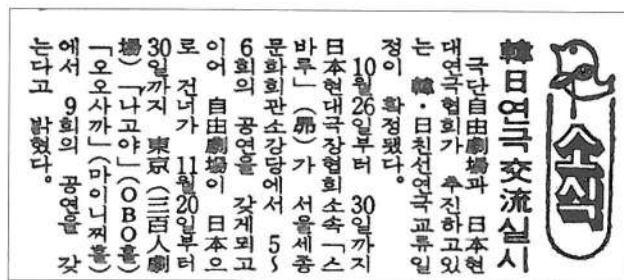 소식
韓日연극交流실시
극단自由劇場과 日本현
대연극협회가 추진하고있
는 韓·日친선연극교류일
정이 확정됐다.
10월26일부터 30일까지
日本현대극장협회소속「스
바루」(昴)가 서울세종
문화회관소강당에서 5~
6회의 공연을 갖게되고
이어 自由劇場이 日本으
로 건너가 11월20일부터
30일까지 東京(三百人劇
場)「나고야」(OBO홀)
「오오사까」(마이니찌홀)
에서 9회의 공연을 갖
는다고 밝혔다.